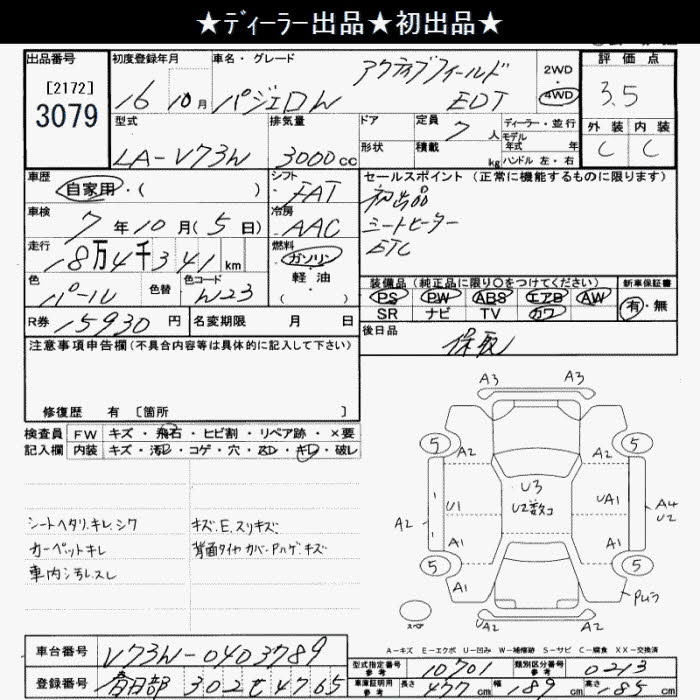 ★ディーラー出品★初出品★
出品番号 初度登録年月 車名・グレード 評価点
[2172]
3079
16 10月 パジェロW アクティブフィールド EDT 2WD 4WD 3.5
型式 排気量 ドア 定員 7人 ディーラー・並行 外装 内装
LA-V73W 3000cc 形状 積載 kg モデル年式 年 ハンドル 左・右 C C
車歴 シフト セールスポイント (正常に機能するものに限ります)
自家用・( ) FAT 初出品
車検 冷房 シートヒーター
7年10月(5日) AAC ETC
走行 燃料
18万4千341km ガソリン・軽油
色 色替 色コード ( ) 装備品 (純正品に限り○をつけてください) 新車保証書
パール W23 PS PW ABS エアB AW 有・無
SR ナビ TV カワ
R券 15930円 名変期限 月 日 後日品
保取
注意事項申告欄(不具合内容等は具体的に記入して下さい)
修復歴 有 [箇所 ]
検査員 FW キズ・飛石・ヒビ割・リペア跡・×要
記入欄 内装 キズ・汚レ・コゲ・穴・スレ・キレ・破レ
シートヘタリ.キレ.シワ キズ.E.スリキズ
カーペットキレ 背面タイヤカバーPハゲ.キズ
車内汚レ.スレ
A3 A3
5 A2 A2 5
U3
U1 U2数コ UA1
A2 A4
U2
A1 A1
5 5
A1 A1
スペア A2 A2
A-キズ E-エクボ U-凹み W-補修跡 S-サビ C-腐食 XX-交換済
車台番号 V73W-0403789 型式指定番号 参考 10701 類別区分番号 参考 0213
登録番号 春日部 302 4765 車庫証明用 参考 長さ 477cm 幅 189cm 高さ 185cm